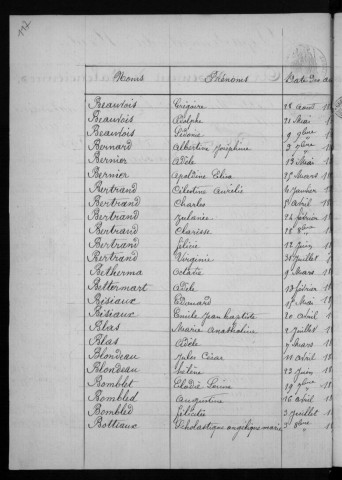 112
Noms Prénoms Date des ac
Beauvois Grégoire 28 Août 18
Beauvois Adolphe 21 Mai 18
Beauvois Sidonie 9 9bre 18
Bernard Albertine Joséphine 3 9bre 18
Bernier Adèle 13 Mai 18
Bernier Apoldine Elisa 25 Mars 18
Bertrand Célestine Aurélie 6 Janvier 18
Bertrand Charles 1 Avril 18
Bertrand Zulanée 24 février 18
Bertrand Clarisse 18 8bre 18
Bertrand félicie 12 Juin 18
Bertrand Virginie 31 Juillet 18
Betherma Octavie 9 Mars 18
Bettermart Adèle 13 février 18
Bisiaux Edouard 17 Mai 18
Bisiaux Emile Jean baptiste 20 Avril 18
Blas Marie 1 Juillet 18
Blas Adèle 7 Mars 18
Blondeau Jules César 11 avril 18
Blondeau 13 Juin 18
Bomblet Elodie 19 9bre 18
Bombled Augustine 16 avril 18
Bombled félicité 3 Juillet 18
Bottiaux Scholastique angélique marie 3 8bre 18